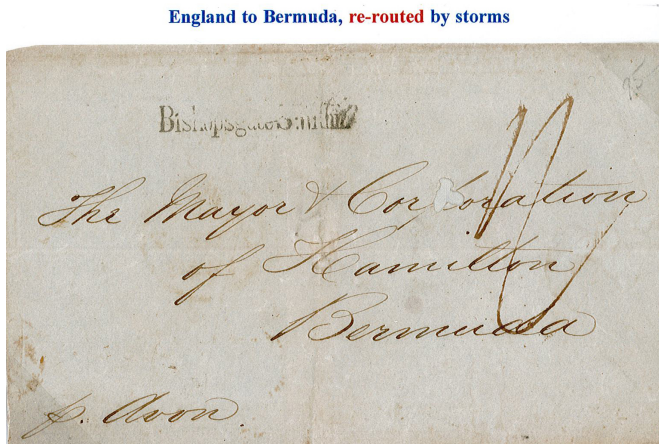 England to Bermuda, re-routed by storms
Bishopsgate
The Mayor & Corporation
of Hamilton
Bermuda
p. Avon.